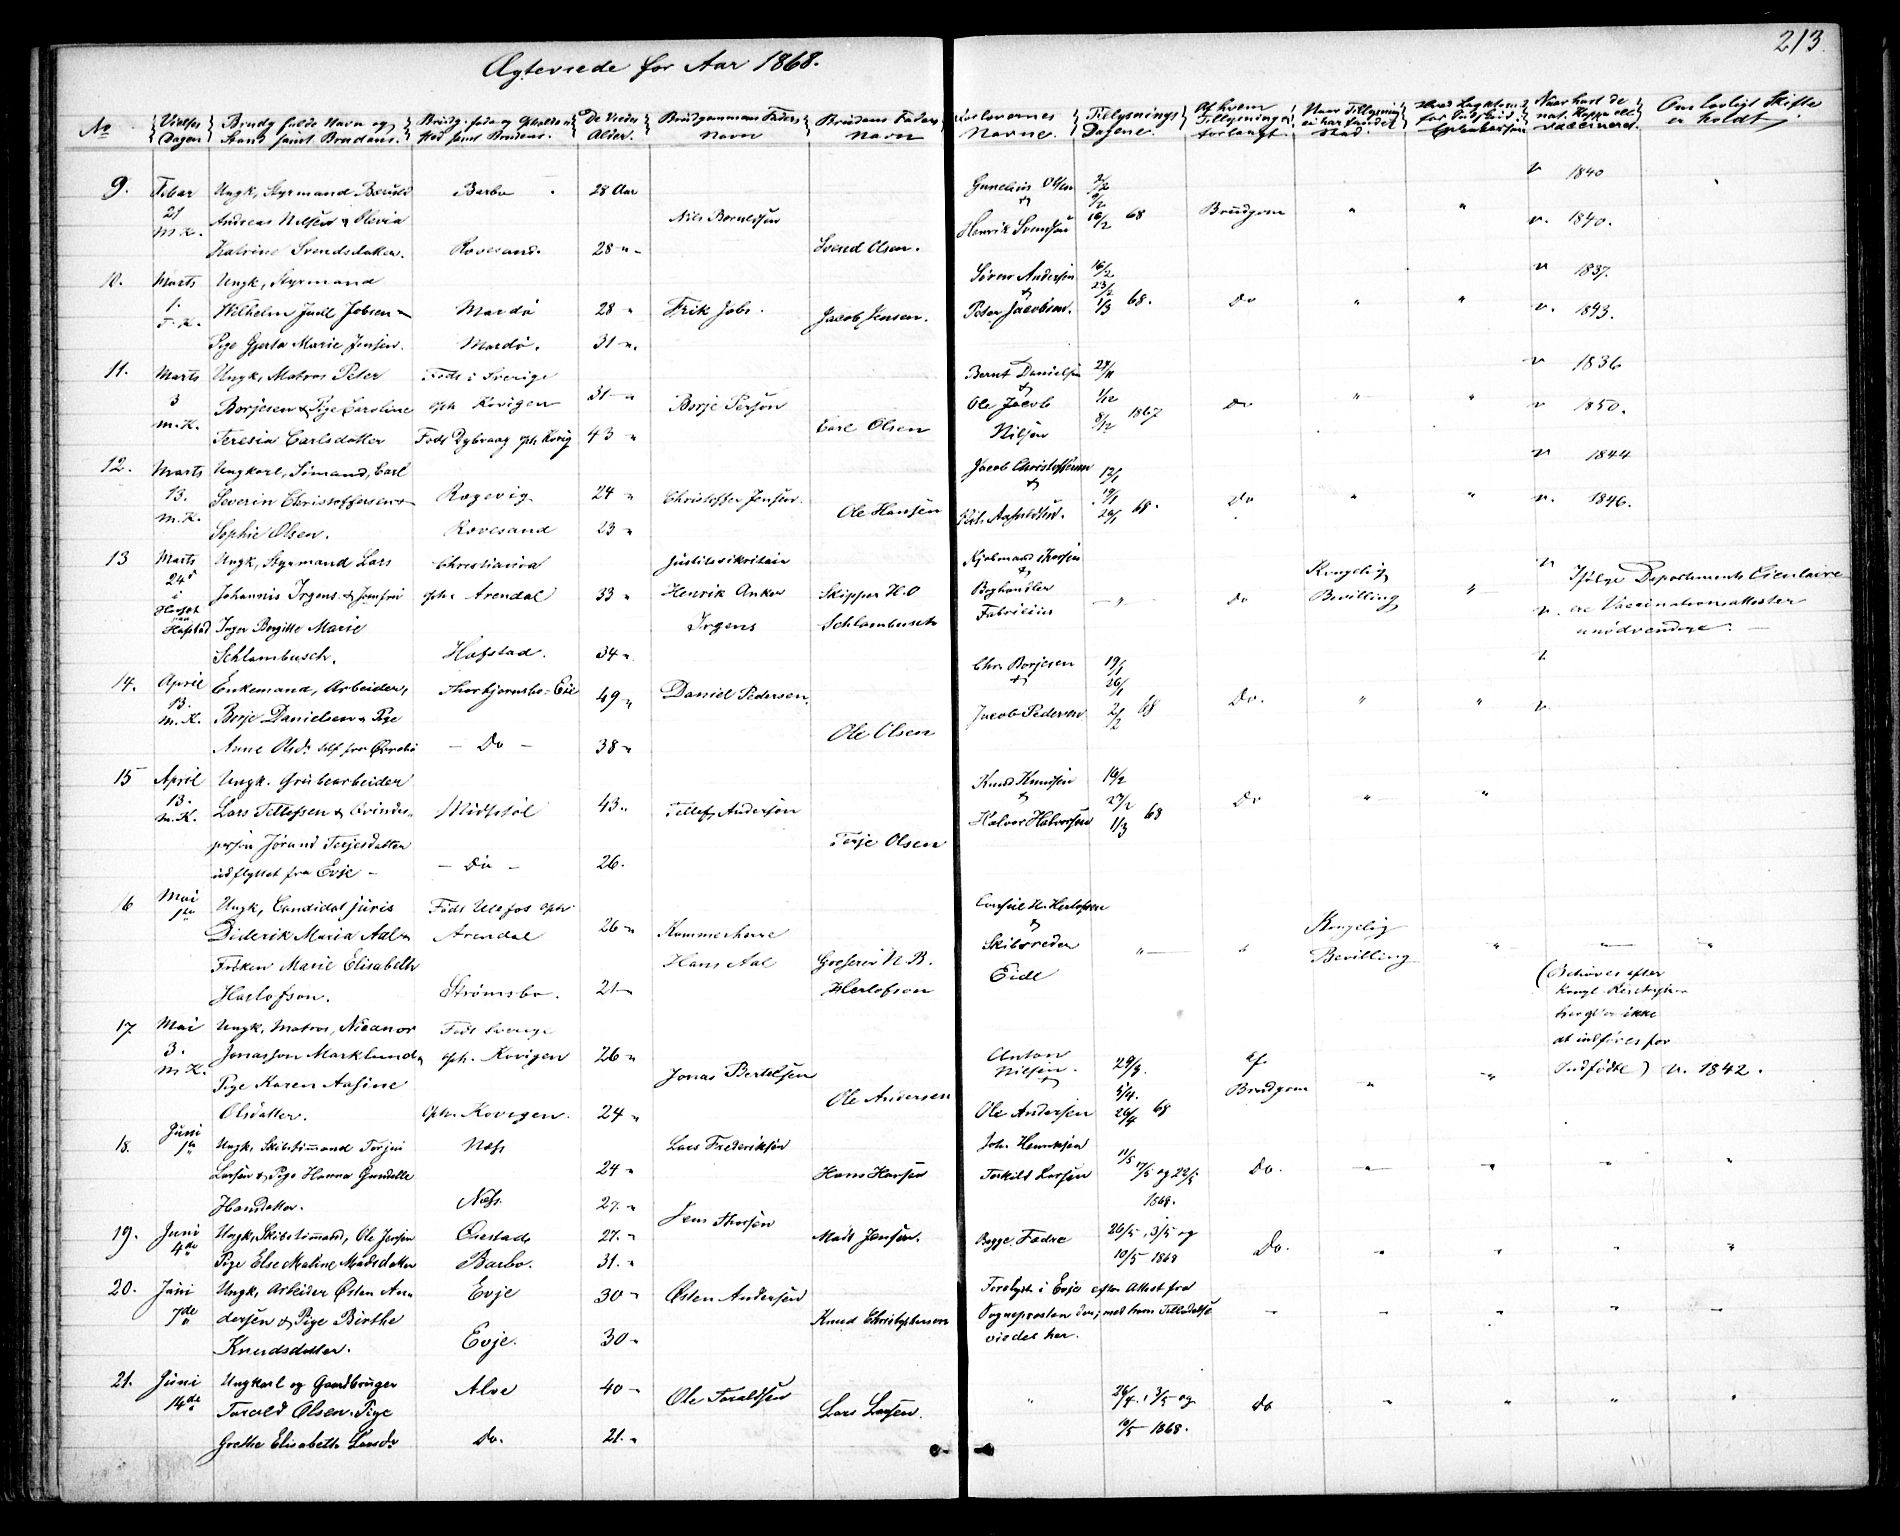 213.
Ægteviede for Aar 1868.
No
Vielses Dagen
Brudg fulde Navn og Stand samt Brudens.
Brudg: føde og Opholds Sted samt Brudens.
De Viedes Alder.
Brudgommens Faders Navn
Brudens Faders Navn
Forlovernes Navne.
Tillysnings Dagene.
Af hvem Tillysningen forlangt.
Naar Tillysning ei har fundet Sted
Naar havt de nat. Kopper ell. vaccineret.
Om lovligt Skifte er holdt.
9. Febar 21 M.K.
Ungk, Styrmand
Andreas Nilsen & Olevia
Katrine Svendsdatter.
Barbo
Kovesand.
28 Aar
28 "
Nils
Svend Olsen.
Gunelius Olsen
&
Henrik Svensen
2/2 9/2 16/2 68
Brudgom
" "
v 1840
v. 1840.
10. Marts 1. F.K.
Ungk, Styrmand
Wilhelm Juell Jobsen &
Pige Gjerta Marie Jensen.
Mardø
Mardø.
28 "
31 ".
Erik Jobs.
Jacob Jensen.
Søren Andersen
&
Peter Jacobsen.
16/2 23/2 1/3 68.
Do
" "
v 1837.
v. 1843.
11. Marts 3 M.K.
Ungk, Matros Peter
Borjesen & Pige Caroline
Teresia Carlsdatter
Født i Sverige
oph Kovigen
Født Dybvaag oph Kovig
31 "
43 "
Borje Person
Carl Olsen
Bernt Danielsen
&
Ole Jacob
Nilsen
24/11 1/12 8/12 1867
Do
" "
v 1836
v 1850.
12. Marts 13. M.K.
Ungkarl, Sømand, Carl
Severin Christoffersen &
Sophie Olsen.
Ragevig
Kovesand
24 "
23 "
Christoffer Jensen.
Ole Hansen
Jacob Christoffersen
&
12/1 19/1 26/1 68.
Do
" "
v 1844
v. 1846.
13 Marts 24d i Huset paa Hafstad
Ungk, Styrmand Lars
Johannis Irgens & Jomfru
Inger Birgitte Marie
Schlambusch.
Christiania
oph: Arendal
Hafstad.
33 "
34 "
Henrik Anker
Irgens
Skipper H.O
Schlambusch
Kjøbmand
&
Boghandler
Fabricius
— " —
Do
Kongelig
Bevilling
"
v
v.
Ifølge Departements Cirkulaire
ere Vaccinationsattester
unødvendige. —
14. April 13. M.K.
Enkemand, Arbeider,
Borje Danielsen & Pige
Anne Olsd:
Thorbjørnsbo - Eie
— Do —
49 "
38 "
Daniel Pedersen.
Ole Olsen
Chr. Borjesen
&
Jacob Pedersen
19/1 26/1 2/2 68
Do.
" "
v.
v
15 April 13. M.K.
Ungk. Grubearbeider
Lars Tellefsen & Qvindes-
person Jørund Terjesdatter
udflyttet fra Evje —
Midtstøl
— Do —
43 "
26.
Tellef Andersen
Terje Olsen
Knud Knudsen
&
Halvor Halvorsen
16/2 23/2 1/3 68
Do
" "
16 Mai 1ste
Ungk, Candidat juris
Diderik Maria Aal &
Frøken Marie Elisabeth
Herlofson.
Født Ulefos oph
Arendal
Strømsbo.
26 "
21 "
Kammerherre
Hans Aal
Grosserer N.B.
Herlofson
Consul N. Herlofson
&
Skibsreder
Eide
" "
Kongelig
Bevilling
" " "
(Behøves efter
Kongl. Reskript
ikke
at indføres for
Indfødte) v. 1842.
17. Mai 3. M.K.
Ungk, Matros, Nicanor
Jonasson Marklund &
Pige Karen Aasine
Olsdatter.
Født Sverige
oph. Kovigen
oph. Kovigen.
26 "
24 "
Jonas Bertelsen
Ole Andersen
Anton
Nilsen.
&
Ole Andersen
29/3. 5/4. 26/4 68
af
Brudgom
" "
18. Juni 1ste
Ungk, Skibstømmand Terjus
Larsen & Pige Hanna Gundelle
Hansdatter.
Næs
Næs.
24 "
27. "
Lars Frederiksen
Hans Hansen
Joh. Henriksen
Torkild Larsen
11/5 17/5 og 22/5 1868.
Do.
" " " "
19. Juni 4de
Ungk, Skibstømmand, Ole Jensen
Pige Else Maline Madsdatter
Øiestad
Barbo.
27. "
31. "
Jens Thorsen
Mads Jensen.
Begge Fædre
26/5, 3/5 og 10/5 1868
Do.
" " " "
20. Juni 7de
Ungk, Arbeider Østen An-
dersen & Pige Birthe
Knudsdatter.
Evje
Evje.
30 "
30 "
Østen Andersen
Knud Christophersen
Forelyst i Evje efter Attest fra
Sogneprosten der, med hans Tilladelse
viedes her.
" " " "
21. Juni 14de
Ungkarl og Gaardbruger
Torald Olsen. Pige
Grethe Elisabeth Larsdr
Alve
Do.
40 "
21. "
Ole Toraldsen
Lars Larsen.
"
26/4., 3/5 og 10/5 1868.
Do
" " " "